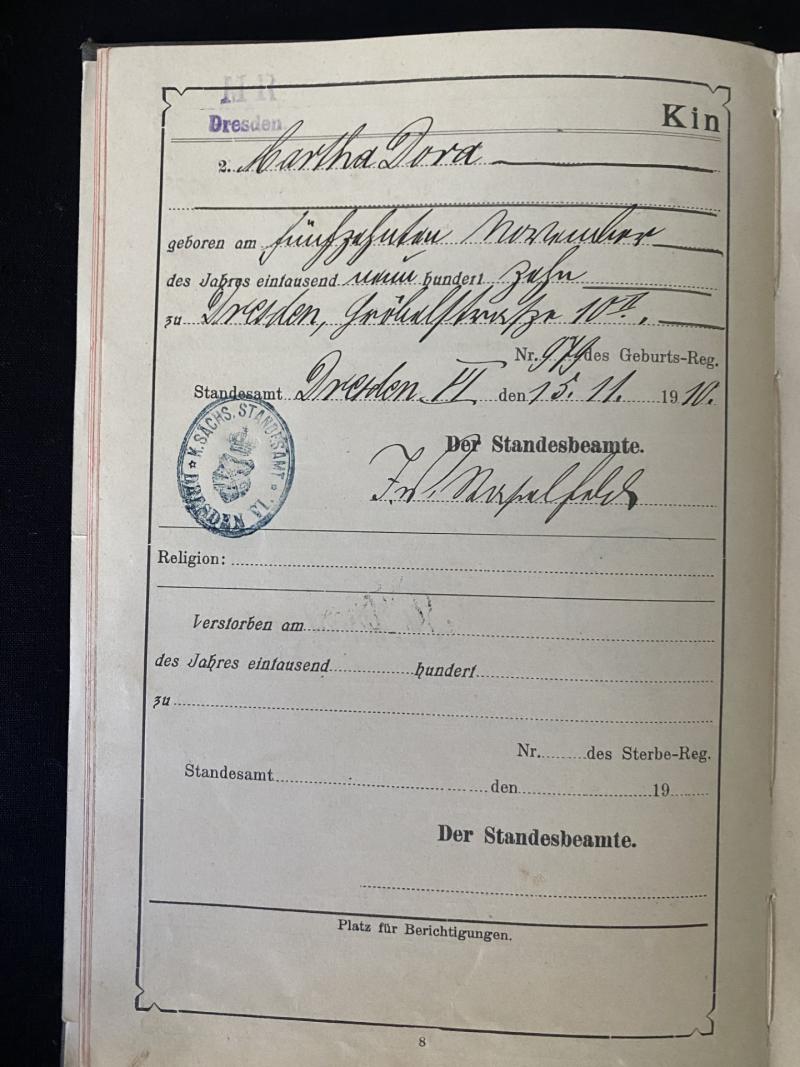 Dresden
Kin
2. Martha Dora
geboren am fünfzehnten November
des Jahres eintausend neun hundert zehn
zu Dresden, Gröbelstraße 10II.
Nr. 979 des Geburts-Reg.
Standesamt Dresden VI den 15. 11. 1910.
K. SÄCHS. STANDESAMT
DRESDEN VI.
Der Standesbeamte.
Religion:
Verstorben am
des Jahres eintausend hundert
zu
Nr. des Sterbe-Reg.
Standesamt den 19
Der Standesbeamte.
Platz für Berichtigungen.
8